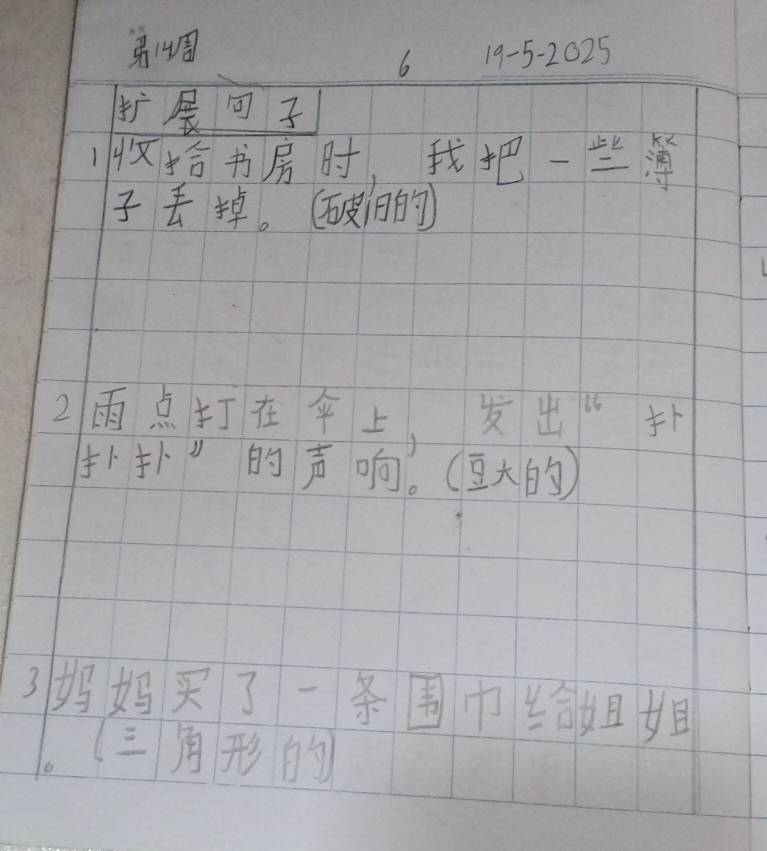 第14周 6 19-5-2025
扩展句子
1 收拾书房时，我把一些簿
子丢掉。(破旧的)
2 雨点打在伞上，发出“扑
扑扑”的声响。(豆大的)
3 妈妈买了一条围巾给姐姐
。(三角形的)